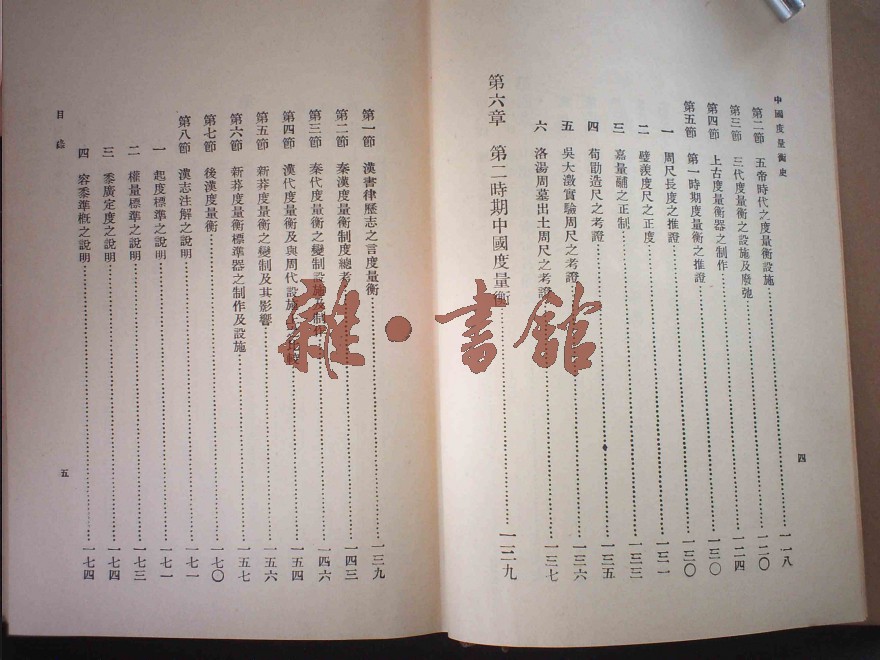 中國度量衡史
第二節 五帝時代之度量衡設施 一一八
第三節 三代度量衡之設施及廢弛 一二〇
第四節 上古度量衡器之制作 一二四
第五節 第一時期度量衡之推證 一三〇
一 周尺長度之推證 一三〇
二 璧羨度尺之正度 一三一
三 嘉量鬴之正制 一三三
四 荀勖造尺之考證 一三五
五 吳大澂實驗周尺之考證 一三六
六 洛陽周墓出土周尺之考證 一三七
第六章 第二時期中國度量衡 一三九
四
第一節 漢書律歷志之言度量衡 一三九
第二節 秦漢度量衡制度總考 一四三
第三節 秦代度量衡之變制設施及制作 一四六
第四節 漢代度量衡及與周代設施上之比較 一五四
第五節 新莽度量衡之變制及其影響 一五六
第六節 新莽度量衡標準器之制作及設施 一五七
第七節 後漢度量衡 一七〇
第八節 漢志注解之說明 一七一
一 起度標準之說明 一七一
二 權量標準之說明 一七三
三 黍廣定度之說明 一七四
四 容黍準概之說明 一七四
目錄
五
雜·書館